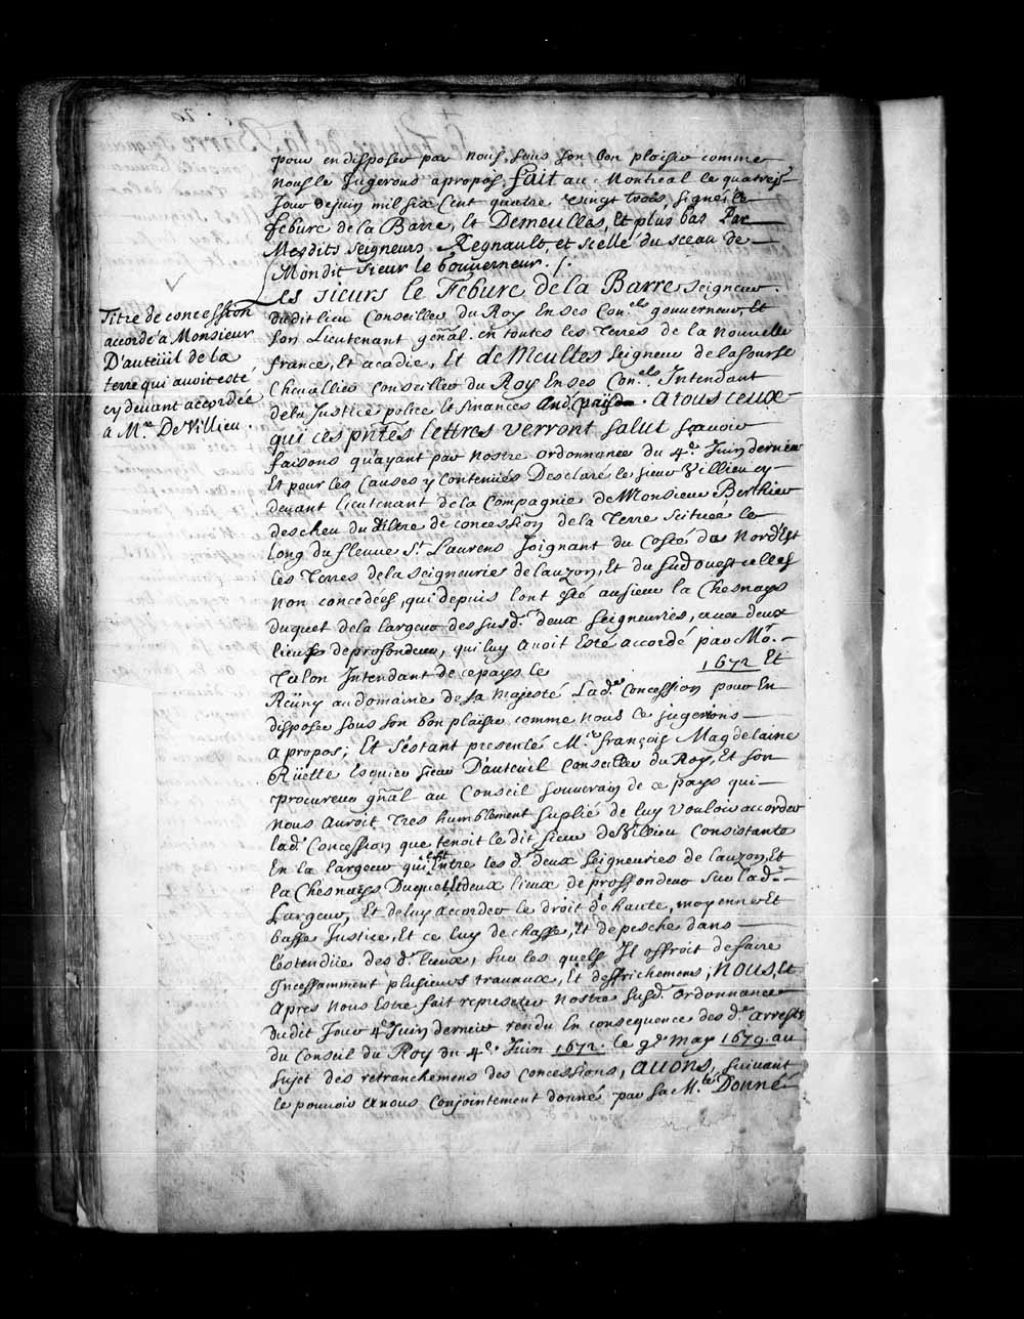 pour en disposer par nous, sous son bon plaisir comme
nous le Jugerons apropos, fait au Montreal le quatreis.
Jour de juin mil six Cent quatre vingt trois, signés le
febure de la Barre, et Demeulles, Et plus bas Par
Mesdits seigneurs Regnault, et scellé du sceau de
Mondit sieur le Gouverneur ./.
Titre de concession
accordé à Monsieur
D'auteüil de la
terre qui avoit esté
cy devant accordée
a Mr. De Villieu.
Les sieurs le Febure de la Barre seigneur
dudit lieu Conseiller du Roy En ses Con.els gouverneur, Et
son Lieutenant gñal. en toutes les Terres de la Nouvelle
france, Et acadie, Et de Meulles seigneur de la sourse
Chevallier Conseiller du Roy En ses Con.els. Intendant
de la Justice police et finances Audt pays. A tous ceux
qui ces pñtes lettres verront salut sçavoir
faisons qu'ayant par Nostre ordonnance du 4e. Juin dernier
Et pour les Causes y Contenües Desclaré le sieur Villieu cy
devant lieutenant de la Compagnie de Monsieur Berthier
descheu du tiltre de concession de la Terre scituée le
long du fleuue St. Laurens Joignant du Costé du Nord'Est
les Terres de la seigneuries de lauzon, Et du sud ouest celles
non concedées, qui depuis l'ont esté au sieur la Chesnays
duquet de la largeur des susd. deux seigneuries, avec deux
lieues de profondeur, qui luy avoit Esté accordé par Mr.
Talon Intendant de ce pays le 1672 Et
Reüny au domaine de sa Majesté Lad.e Concession pour En
disposer sous son bon plaisir comme nous le jugerions
a propos; Et s'estant presenté Mr. françois Magdelaine
Rüette Esquier sieur D'auteuil Conseiller du Roy, Et son
procureur gñal au Conseil souverain de ce pays qui
nous auroit Tres humblement suplié de luy vouloir accorder
lad. Concession que tenoit le dit sieur de Villieu Consistante
En la largeur qui est Entre les d. deux seigneuries de lauzon, Et
la Chesnays Duquet Et deux lieux de proffondeur sur lad.e
Largeur, Et de luy accorder le droit d'haute, moyenne Et
basse Justice, Et ce luy de chasse, Et de pesche dans
l'estendüe des d. lieux, sur les quels Il offroit de faire
Incessamment plusieurs travaux, Et deffrichemens; NOUS, Et
Apres Nous Estre fait represeter Nostre susd. Ordonnance
dudit Jour 4e Juin dernier rendu En consequence des d.e arrests
du Conseil du Roy du 4e. Juin 1672. le 9e may 1679. au
sujet des retranchemens des concessions, AUONS, suivant
le pouvoir a nous Conjointement donné par sa M.té Donné